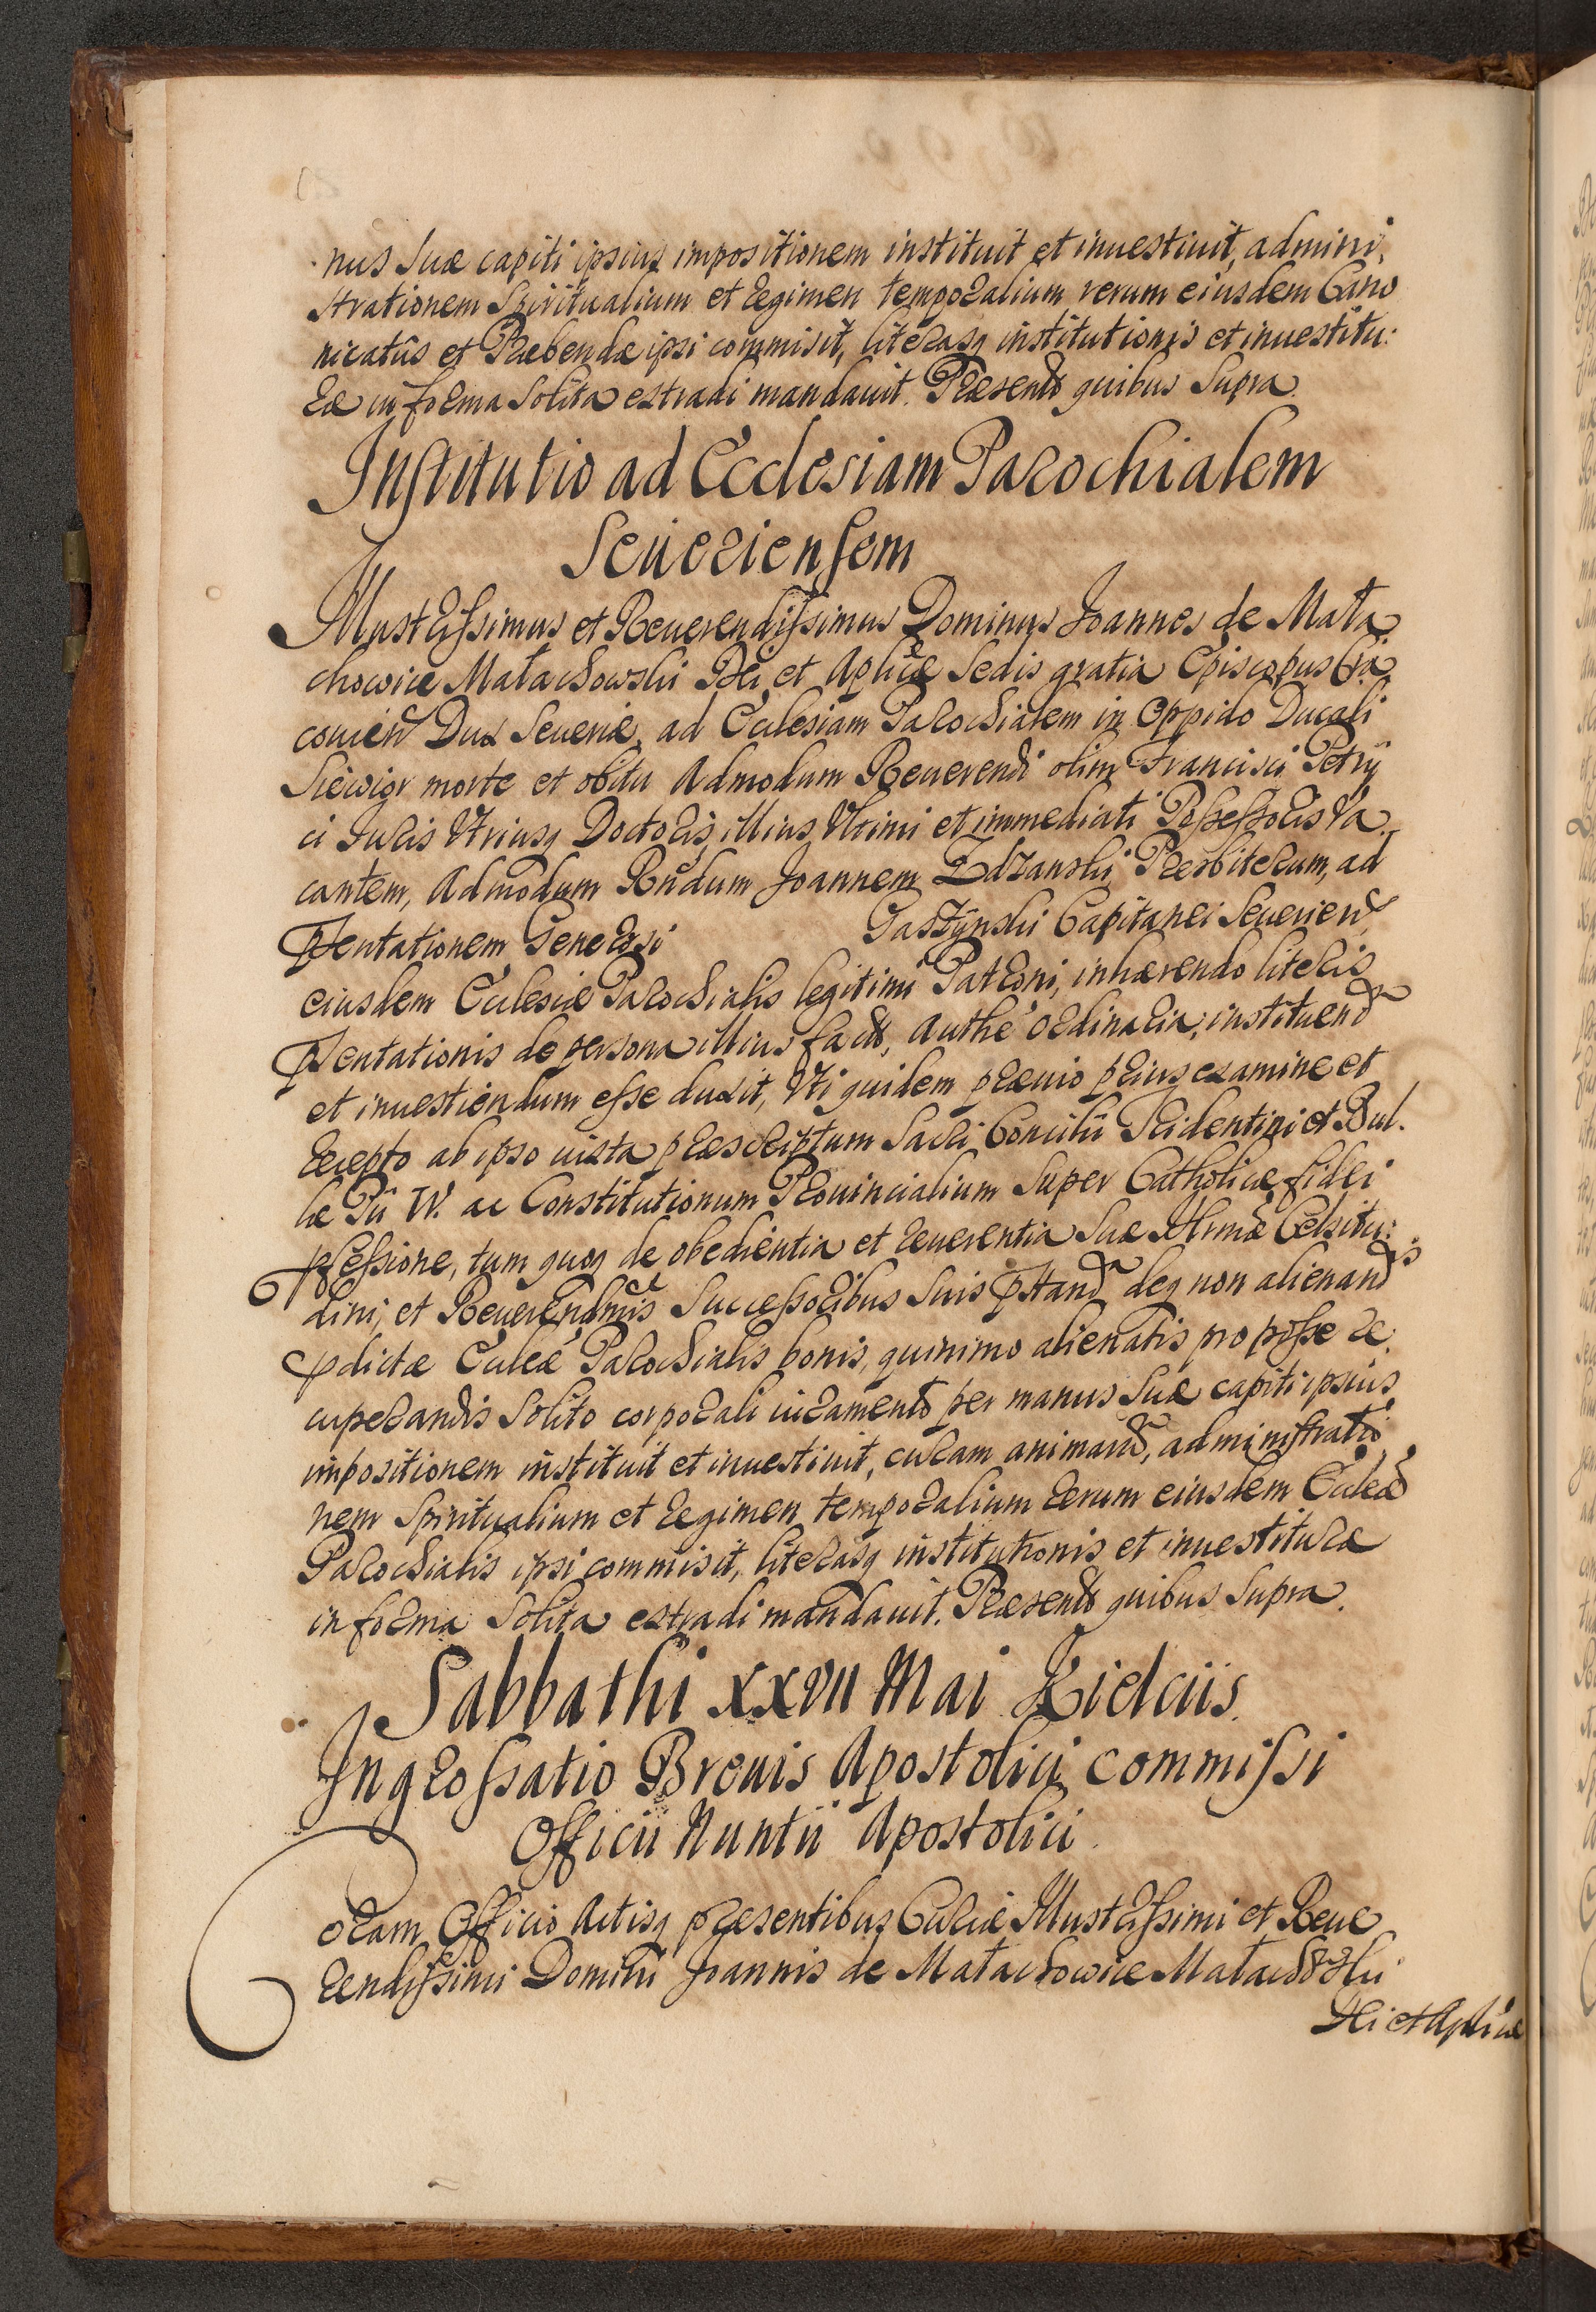 nus suæ capiti ipsius impositionem instituit et inuestiuit, admini,
strationem Spiritualium et regimen temporalium rerum eiusdem Cano
nicatûs et Præbendæ ipsi commisit, literasq institutionis et inuestitu:
ræ in forma solita extradi mandauit. Præsentib quibus supra.
Institutio ad Ecclesiam Parochialem
Seueriensem
Illustrissimus et Reuerendissimus Dominus Joannes de Mała
chowice Małachowski Dei et Aplicæ Sedis gratia Episcopus Cra
couien Dux Seueriæ, ad Ecclesiam Parochialem in Oppido Ducali
Siewior morte et obitu Admodum Reuerendi olim Francisci Petry
ci Juris Vtriusq Doctoris, illius Vltimi et immediati Possessoris Va
cantem, Admodum Rndum Joannem Zdzanski Presbiterum, ad
pntationem Generosi Gaszÿnski Capitanei Seuerien,
eiusdem Ecclesiæ Parochialis legitimi Patroni, inhærendo literis
pntationis de persona illius factis, Authe ordinaria, instituend
et inuestiendum esse duxit, Vti quidem præuio prius examine et
recepto ab ipso iuxta præscriptum Sacri Concilii Tridentini et Bul.
læ Pii IV. ac Constitutionum Prouincialium super Catholicæ fidei
pfessione, tum quoq de obedientia et reuerentia suæ Illrmæ Celsitu:
dini, et Reuerendmis Successoribus suis pstand deq non alienandis
pdictæ Ecclæ Parochialis bonis, quinimo alienatis pro posse re,
cuperandis solito corporali iuramento per manus suæ capiti ipsius
impositionem instituit et inuestiuit, curam animarū, administratio
nem Spiritualium et regimen temporalium rerum eiusdem Ecclæ
Parochialis ipsi commisit, literasq institutionis et inuestituræ
in forma solita extradi mandauit. Præsentib quibus supra.
Sabbathi XXVII Mai Kielciis.
Ingrossatio Breuis Apostolici commissi
Officii Nuntii Apostolici.
Coram Officio Actisq præsentibus Curiæ Illustrissimi et Reue
rendissimi Domini Joannis de Małachowice Małachowski
Dei et Aplicæ